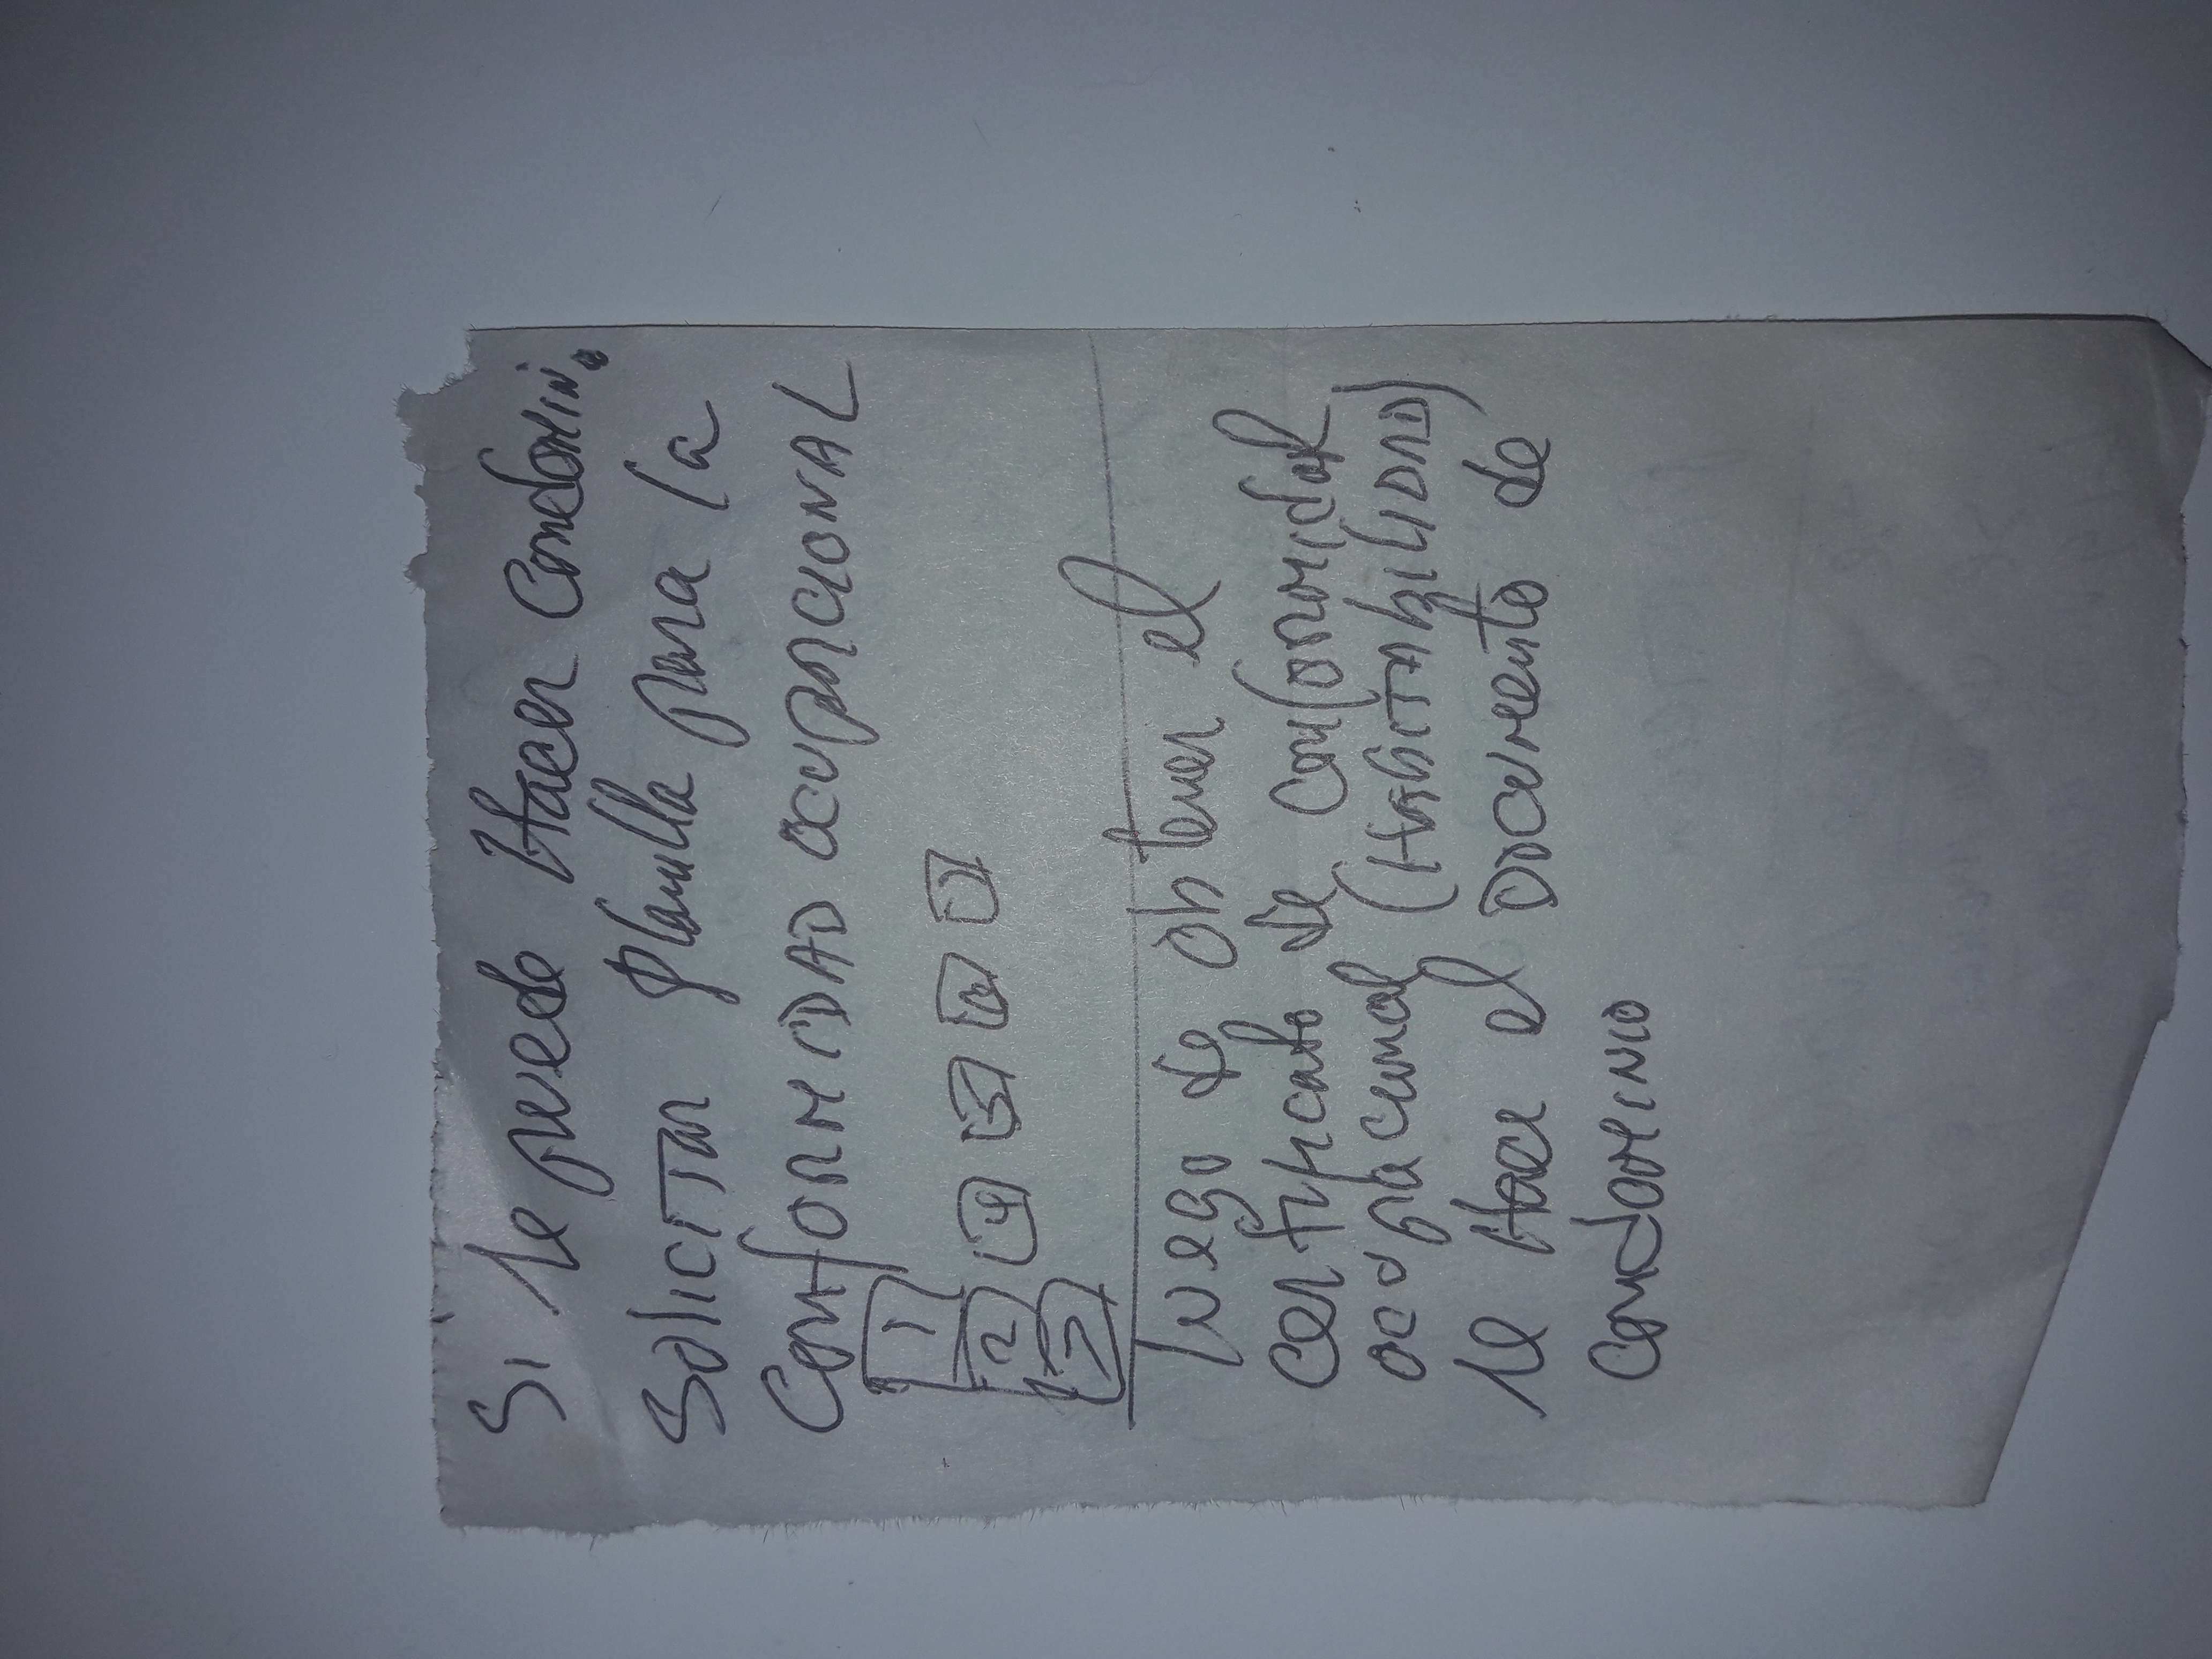 Si se puede Hacer Condomin.
Solicitar planilla para la
Conformidad ocupacional
1
2
3
4
Luego de obtener el
Certificado de Conformidad
ocupacional (Habitabilidad)
se Hace el Documento de
Condominio